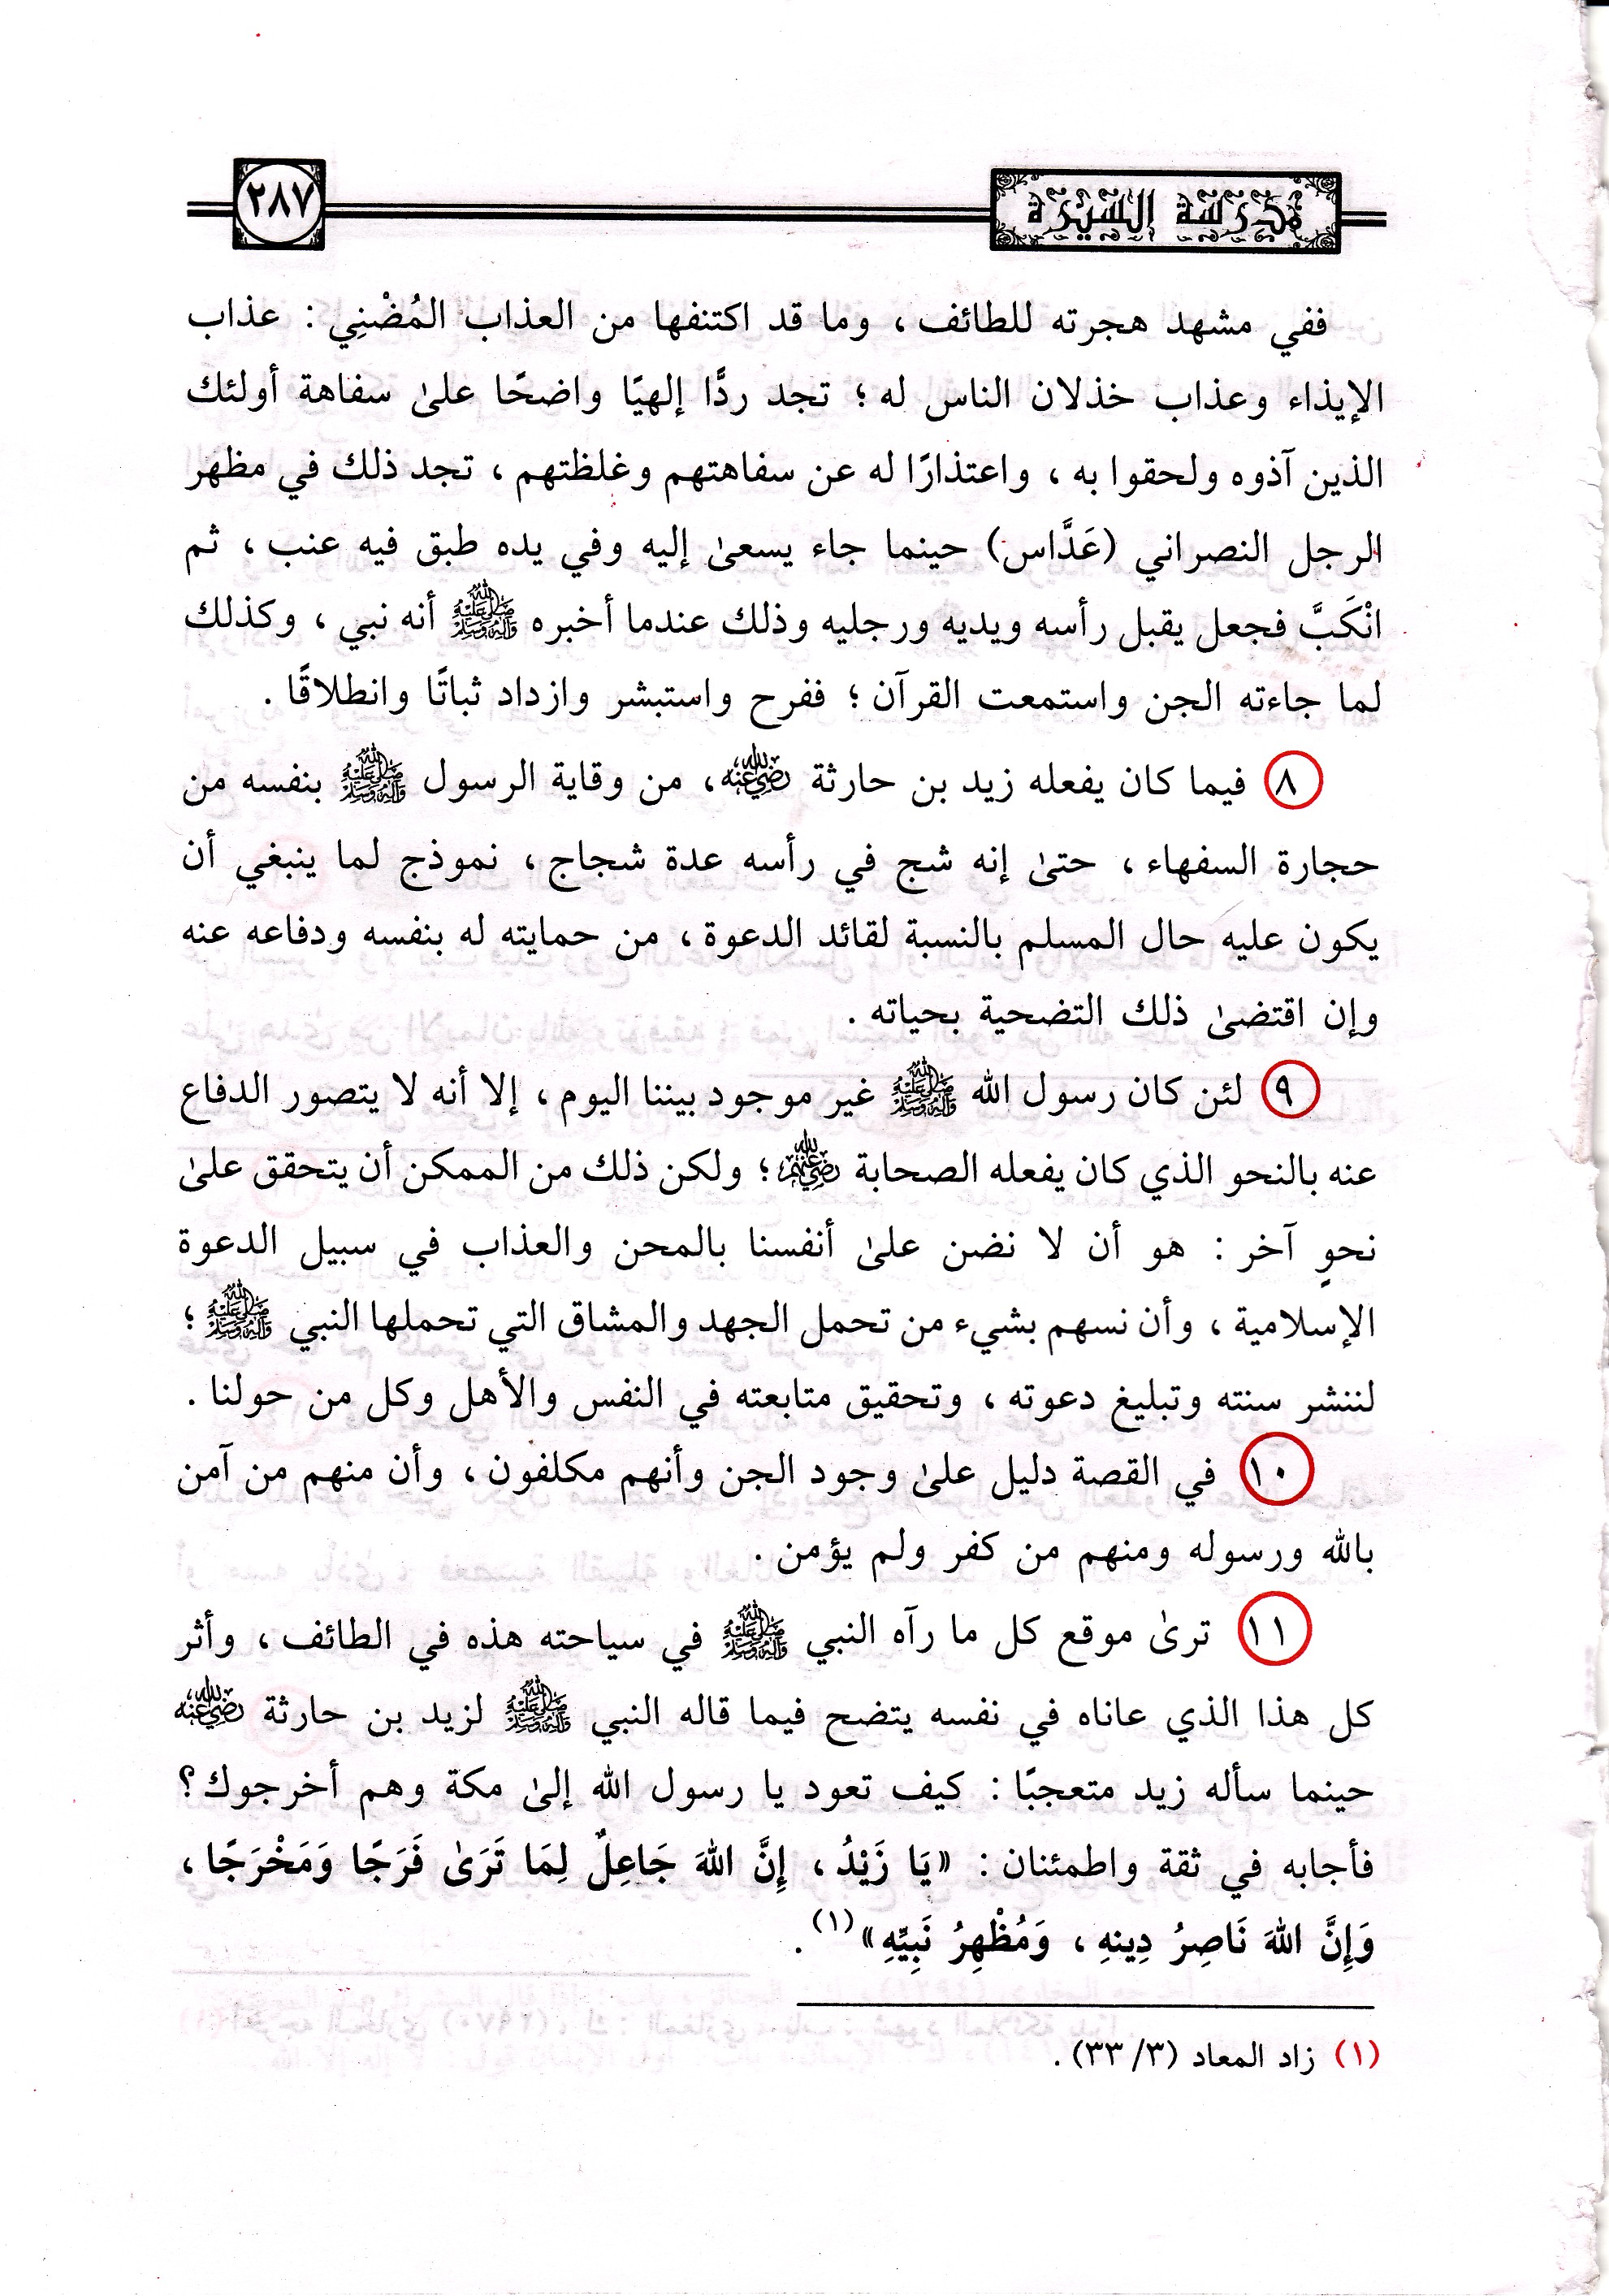 مدرسة السيرة
٢٨٧
ففي مشهد هجرته للطائف ، وما قد اكتنفها من العذاب المُضْنِي : عذاب
الإيذاء وعذاب خذلان الناس له ؛ تجد ردًّا إلهيًا واضحًا علىٰ سفاهة أولئك
الذين آذوه ولحقوا به ، واعتذارًا له عن سفاهتهم وغلظتهم ، تجد ذلك في مظهر
الرجل النصراني (عَدَّاس) حينما جاء يسعىٰ إليه وفي يده طبق فيه عنب ، ثم
انْكَبَّ فجعل يقبل رأسه ويديه ورجليه وذلك عندما أخبره ﷺ أنه نبي ، وكذلك
لما جاءته الجن واستمعت القرآن ؛ ففرح واستبشر وازداد ثباتًا وانطلاقًا .
٨ فيما كان يفعله زيد بن حارثة رضي الله عنه ، من وقاية الرسول ﷺ بنفسه من
حجارة السفهاء ، حتىٰ إنه شج في رأسه عدة شجاج ، نموذج لما ينبغي أن
يكون عليه حال المسلم بالنسبة لقائد الدعوة ، من حمايته له بنفسه ودفاعه عنه
وإن اقتضىٰ ذلك التضحية بحياته .
٩ لئن كان رسول الله ﷺ غير موجود بيننا اليوم ، إلا أنه لا يتصور الدفاع
عنه بالنحو الذي كان يفعله الصحابة رضي الله عنهم ؛ ولكن ذلك من الممكن أن يتحقق علىٰ
نحوٍ آخر : هو أن لا نضن علىٰ أنفسنا بالمحن والعذاب في سبيل الدعوة
الإسلامية ، وأن نسهم بشيء من تحمل الجهد والمشاق التي تحملها النبي ﷺ ؛
لننشر سنته وتبليغ دعوته ، وتحقيق متابعته في النفس والأهل وكل من حولنا .
١٠ في القصة دليل علىٰ وجود الجن وأنهم مكلفون ، وأن منهم من آمن
بالله ورسوله ومنهم من كفر ولم يؤمن .
١١ ترىٰ موقع كل ما رآه النبي ﷺ في سياحته هذه في الطائف ، وأثر
كل هذا الذي عاناه في نفسه يتضح فيما قاله النبي ﷺ لزيد بن حارثة رضي الله عنه
حينما سأله زيد متعجبًا : كيف تعود يا رسول الله إلىٰ مكة وهم أخرجوك ؟
فأجابه في ثقة واطمئنان : «يَا زَيْدُ ، إِنَّ اللهَ جَاعِلٌ لِمَا تَرَىٰ فَرَجًا وَمَخْرَجًا ،
وَإِنَّ اللهَ نَاصِرُ دِينهِ ، وَمُظْهِرُ نَبِيِّهِ»(١) .
(١) زاد المعاد (٣/ ٣٣) .